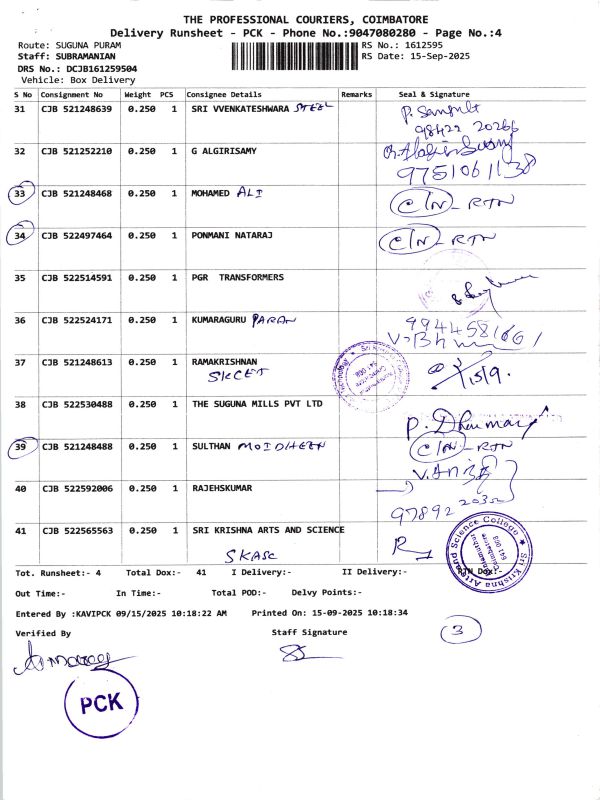 THE PROFESSIONAL COURIERS, COIMBATORE
Delivery Runsheet - PCK - Phone No.:9047080280 - Page No.:4
Route: SUGUNA PURAM RS No.: 1612595
Staff: SUBRAMANIAN RS Date: 15-Sep-2025
DRS No.: DCJB161259504
Vehicle: Box Delivery
S No Consignment No Weight PCS Consignee Details Remarks Seal & Signature
31 CJB 521248639 0.250 1 SRI VVENKATESHWARA STEEL P. Sampult
98422 20266
32 CJB 521252210 0.250 1 G ALGIRISAMY
9751061138
33 CJB 521248468 0.250 1 MOHAMED ALI C/N - RTN
34 CJB 522497464 0.250 1 PONMANI NATARAJ C/N - RTN
35 CJB 522514591 0.250 1 PGR TRANSFORMERS
36 CJB 522524171 0.250 1 KUMARAGURU PARAN 9944581661
37 CJB 521248613 0.250 1 RAMAKRISHNAN 15/9.
SKCET
38 CJB 522530488 0.250 1 THE SUGUNA MILLS PVT LTD
P. Dhanumary
39 CJB 521248488 0.250 1 SULTHAN MOIDHEEN C/N - RTN
40 CJB 522592006 0.250 1 RAJEHSKUMAR
97892 20352
41 CJB 522565563 0.250 1 SRI KRISHNA ARTS AND SCIENCE
SKASC
Sri Krishna Arts and Science College
Kuniamuthur
Coimbatore
641 008
Tot. Runsheet:- 4 Total Dox:- 41 I Delivery:- II Delivery:- RTN Dox:-
Out Time:- In Time:- Total POD:- Delvy Points:-
Entered By :KAVIPCK 09/15/2025 10:18:22 AM Printed On: 15-09-2025 10:18:34
Verified By Staff Signature 3
PCK